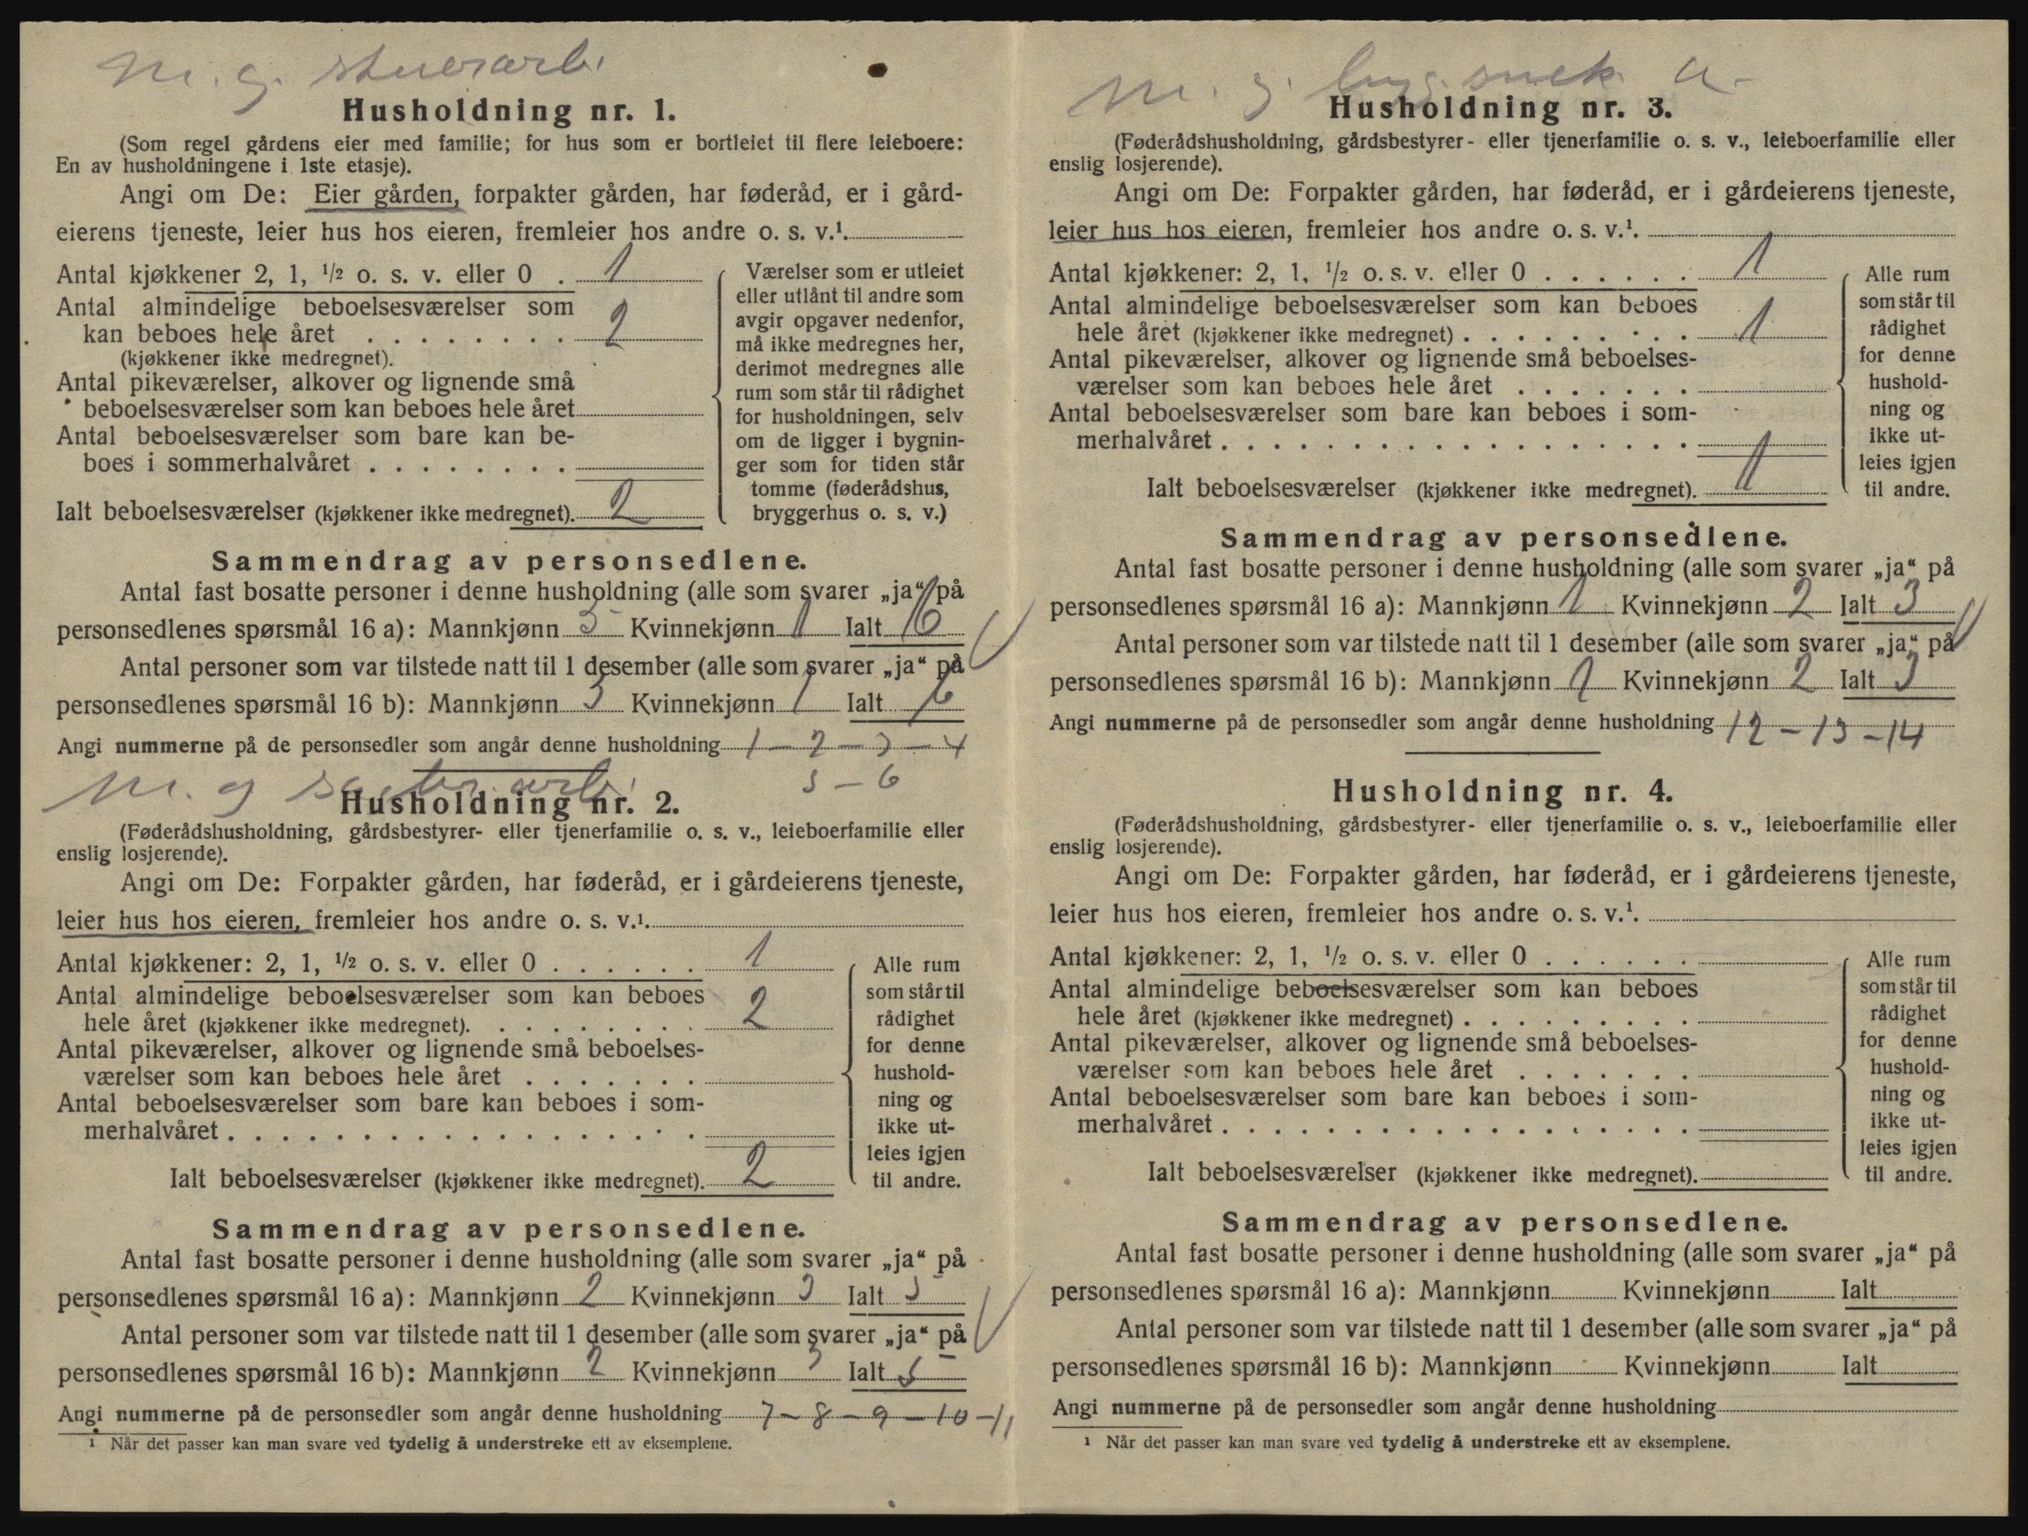 m. g. stuerarb.
Husholdning nr. 1.
(Som regel gårdens eier med familie; for hus som er bortleiet til flere leieboere:
En av husholdningene i 1ste etasje).
Angi om De: Eier gården, forpakter gården, har føderåd, er i gård-
eierens tjeneste, leier hus hos eieren, fremleier hos andre o. s. v.¹.
Antal kjøkkener 2, 1, ½ o. s. v. eller 0 . 1
Antal almindelige beboelsesværelser som
kan beboes hele året . . . . . . . . 2
(kjøkkener ikke medregnet).
Antal pikeværelser, alkover og lignende små
beboelsesværelser som kan beboes hele året
Antal beboelsesværelser som bare kan be-
boes i sommerhalvåret . . . . . . . .
Ialt beboelsesværelser (kjøkkener ikke medregnet). 2
Værelser som er utleiet
eller utlånt til andre som
avgir opgaver nedenfor,
må ikke medregnes her,
derimot medregnes alle
rum som står til rådighet
for husholdningen, selv
om de ligger i bygnin-
ger som for tiden står
tomme (føderådshus,
bryggerhus o. s. v.)
Sammendrag av personsedlene.
Antal fast bosatte personer i denne husholdning (alle som svarer „ja“ på
personsedlenes spørsmål 16 a): Mannkjønn 5 Kvinnekjønn 1 Ialt 6
Antal personer som var tilstede natt til 1 desember (alle som svarer „ja“ på
personsedlenes spørsmål 16 b): Mannkjønn 5 Kvinnekjønn 1 Ialt 6
Angi nummerne på de personsedler som angår denne husholdning 1 - 2 - 3 - 4
5 - 6
m. g.
Husholdning nr. 2.
(Føderådshusholdning, gårdsbestyrer- eller tjenerfamilie o. s. v., leieboerfamilie eller
enslig losjerende).
Angi om De: Forpakter gården, har føderåd, er i gårdeierens tjeneste,
leier hus hos eieren, fremleier hos andre o. s. v.¹.
Antal kjøkkener: 2, 1, ½ o. s. v. eller 0 . . . . . . 1
Antal almindelige beboelsesværelser som kan beboes
hele året (kjøkkener ikke medregnet). . . . . . . . . 2
Antal pikeværelser, alkover og lignende små beboelses-
værelser som kan beboes hele året . . . . . . .
Antal beboelsesværelser som bare kan beboes i som-
merhalvåret . . . . . . . . . . . . . . . . . .
Ialt beboelsesværelser (kjøkkener ikke medregnet). 2
Alle rum
som står til
rådighet
for denne
hushold-
ning og
ikke ut-
leies igjen
til andre.
Sammendrag av personsedlene.
Antal fast bosatte personer i denne husholdning (alle som svarer „ja“ på
personsedlenes spørsmål 16 a): Mannkjønn 2 Kvinnekjønn 3 Ialt 5
Antal personer som var tilstede natt til 1 desember (alle som svarer „ja“ på
personsedlenes spørsmål 16 b): Mannkjønn 2 Kvinnekjønn 3 Ialt 5
Angi nummerne på de personsedler som angår denne husholdning 7 - 8 - 9 - 10 - 11
¹ Når det passer kan man svare ved tydelig å understreke ett av eksemplene.
m. g. byg. snek. a.
Husholdning nr. 3.
(Føderådshusholdning, gårdsbestyrer- eller tjenerfamilie o. s. v., leieboerfamilie eller
enslig losjerende).
Angi om De: Forpakter gården, har føderåd, er i gårdeierens tjeneste,
leier hus hos eieren, fremleier hos andre o. s. v.¹.
Antal kjøkkener: 2, 1, ½ o. s. v. eller 0 . . . . . . 1
Antal almindelige beboelsesværelser som kan beboes
hele året (kjøkkener ikke medregnet) . . . . . . . . . 1
Antal pikeværelser, alkover og lignende små beboelses-
værelser som kan beboes hele året . . . . . . .
Antal beboelsesværelser som bare kan beboes i som-
merhalvåret . . . . . . . . . . . . . . . . . .
Ialt beboelsesværelser (kjøkkener ikke medregnet). 1
Alle rum
som står til
rådighet
for denne
hushold-
ning og
ikke ut-
leies igjen
til andre.
Sammendrag av personsedlene.
Antal fast bosatte personer i denne husholdning (alle som svarer „ja“ på
personsedlenes spørsmål 16 a): Mannkjønn 1 Kvinnekjønn 2 Ialt 3
Antal personer som var tilstede natt til 1 desember (alle som svarer „ja“ på
personsedlenes spørsmål 16 b): Mannkjønn 1 Kvinnekjønn 2 Ialt 3
Angi nummerne på de personsedler som angår denne husholdning 12 - 13 - 14
Husholdning nr. 4.
(Føderådshusholdning, gårdsbestyrer- eller tjenerfamilie o. s. v., leieboerfamilie eller
enslig losjerende).
Angi om De: Forpakter gården, har føderåd, er i gårdeierens tjeneste,
leier hus hos eieren, fremleier hos andre o. s. v.¹.
Antal kjøkkener: 2, 1, ½ o. s. v. eller 0 . . . . . .
Antal almindelige beboelsesværelser som kan beboes
hele året (kjøkkener ikke medregnet) . . . . . . . . .
Antal pikeværelser, alkover og lignende små beboelses-
værelser som kan beboes hele året . . . . . . .
Antal beboelsesværelser som bare kan beboes i som-
merhalvåret . . . . . . . . . . . . . . . . . .
Ialt beboelsesværelser (kjøkkener ikke medregnet).
Alle rum
som står til
rådighet
for denne
hushold-
ning og
ikke ut-
leies igjen
til andre.
Sammendrag av personsedlene.
Antal fast bosatte personer i denne husholdning (alle som svarer „ja“ på
personsedlenes spørsmål 16 a): Mannkjønn Kvinnekjønn Ialt
Antal personer som var tilstede natt til 1 desember (alle som svarer „ja“ på
personsedlenes spørsmål 16 b): Mannkjønn Kvinnekjønn Ialt
Angi nummerne på de personsedler som angår denne husholdning
¹ Når det passer kan man svare ved tydelig å understreke ett av eksemplene.